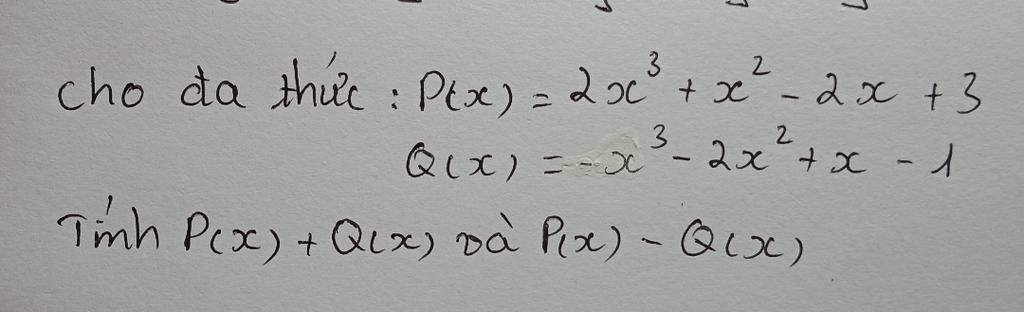 cho đa thức : P(x) = 2x³ + x² - 2x + 3
Q(x) = -x³ - 2x² + x - 1
Tính P(x) + Q(x) và P(x) - Q(x)